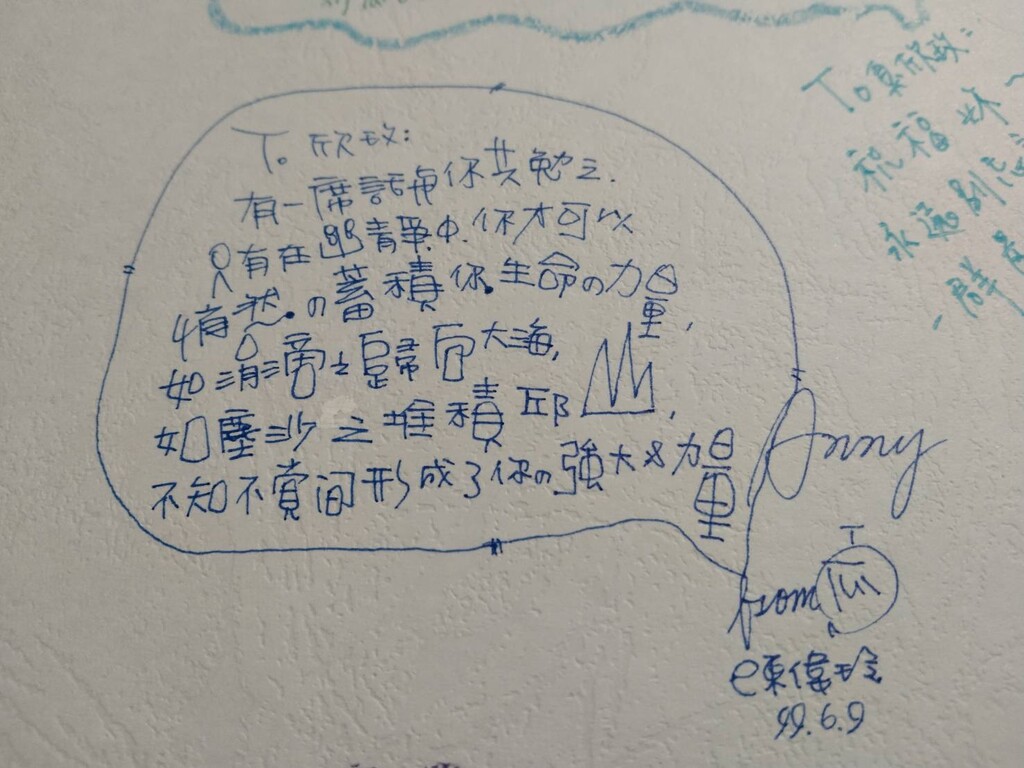 To 欣玫:
有一席話與你共勉之.
只有在 青草中.你才可以
悄然の蓄積你.生命の力量,
如涓滴之歸向大海,
如塵沙之堆積邱山,
不知不覺間形成了你の強大力量
Anny
from
陳偉玲
99.6.9
To 欣玫:
祝福妳~
永遠別忘